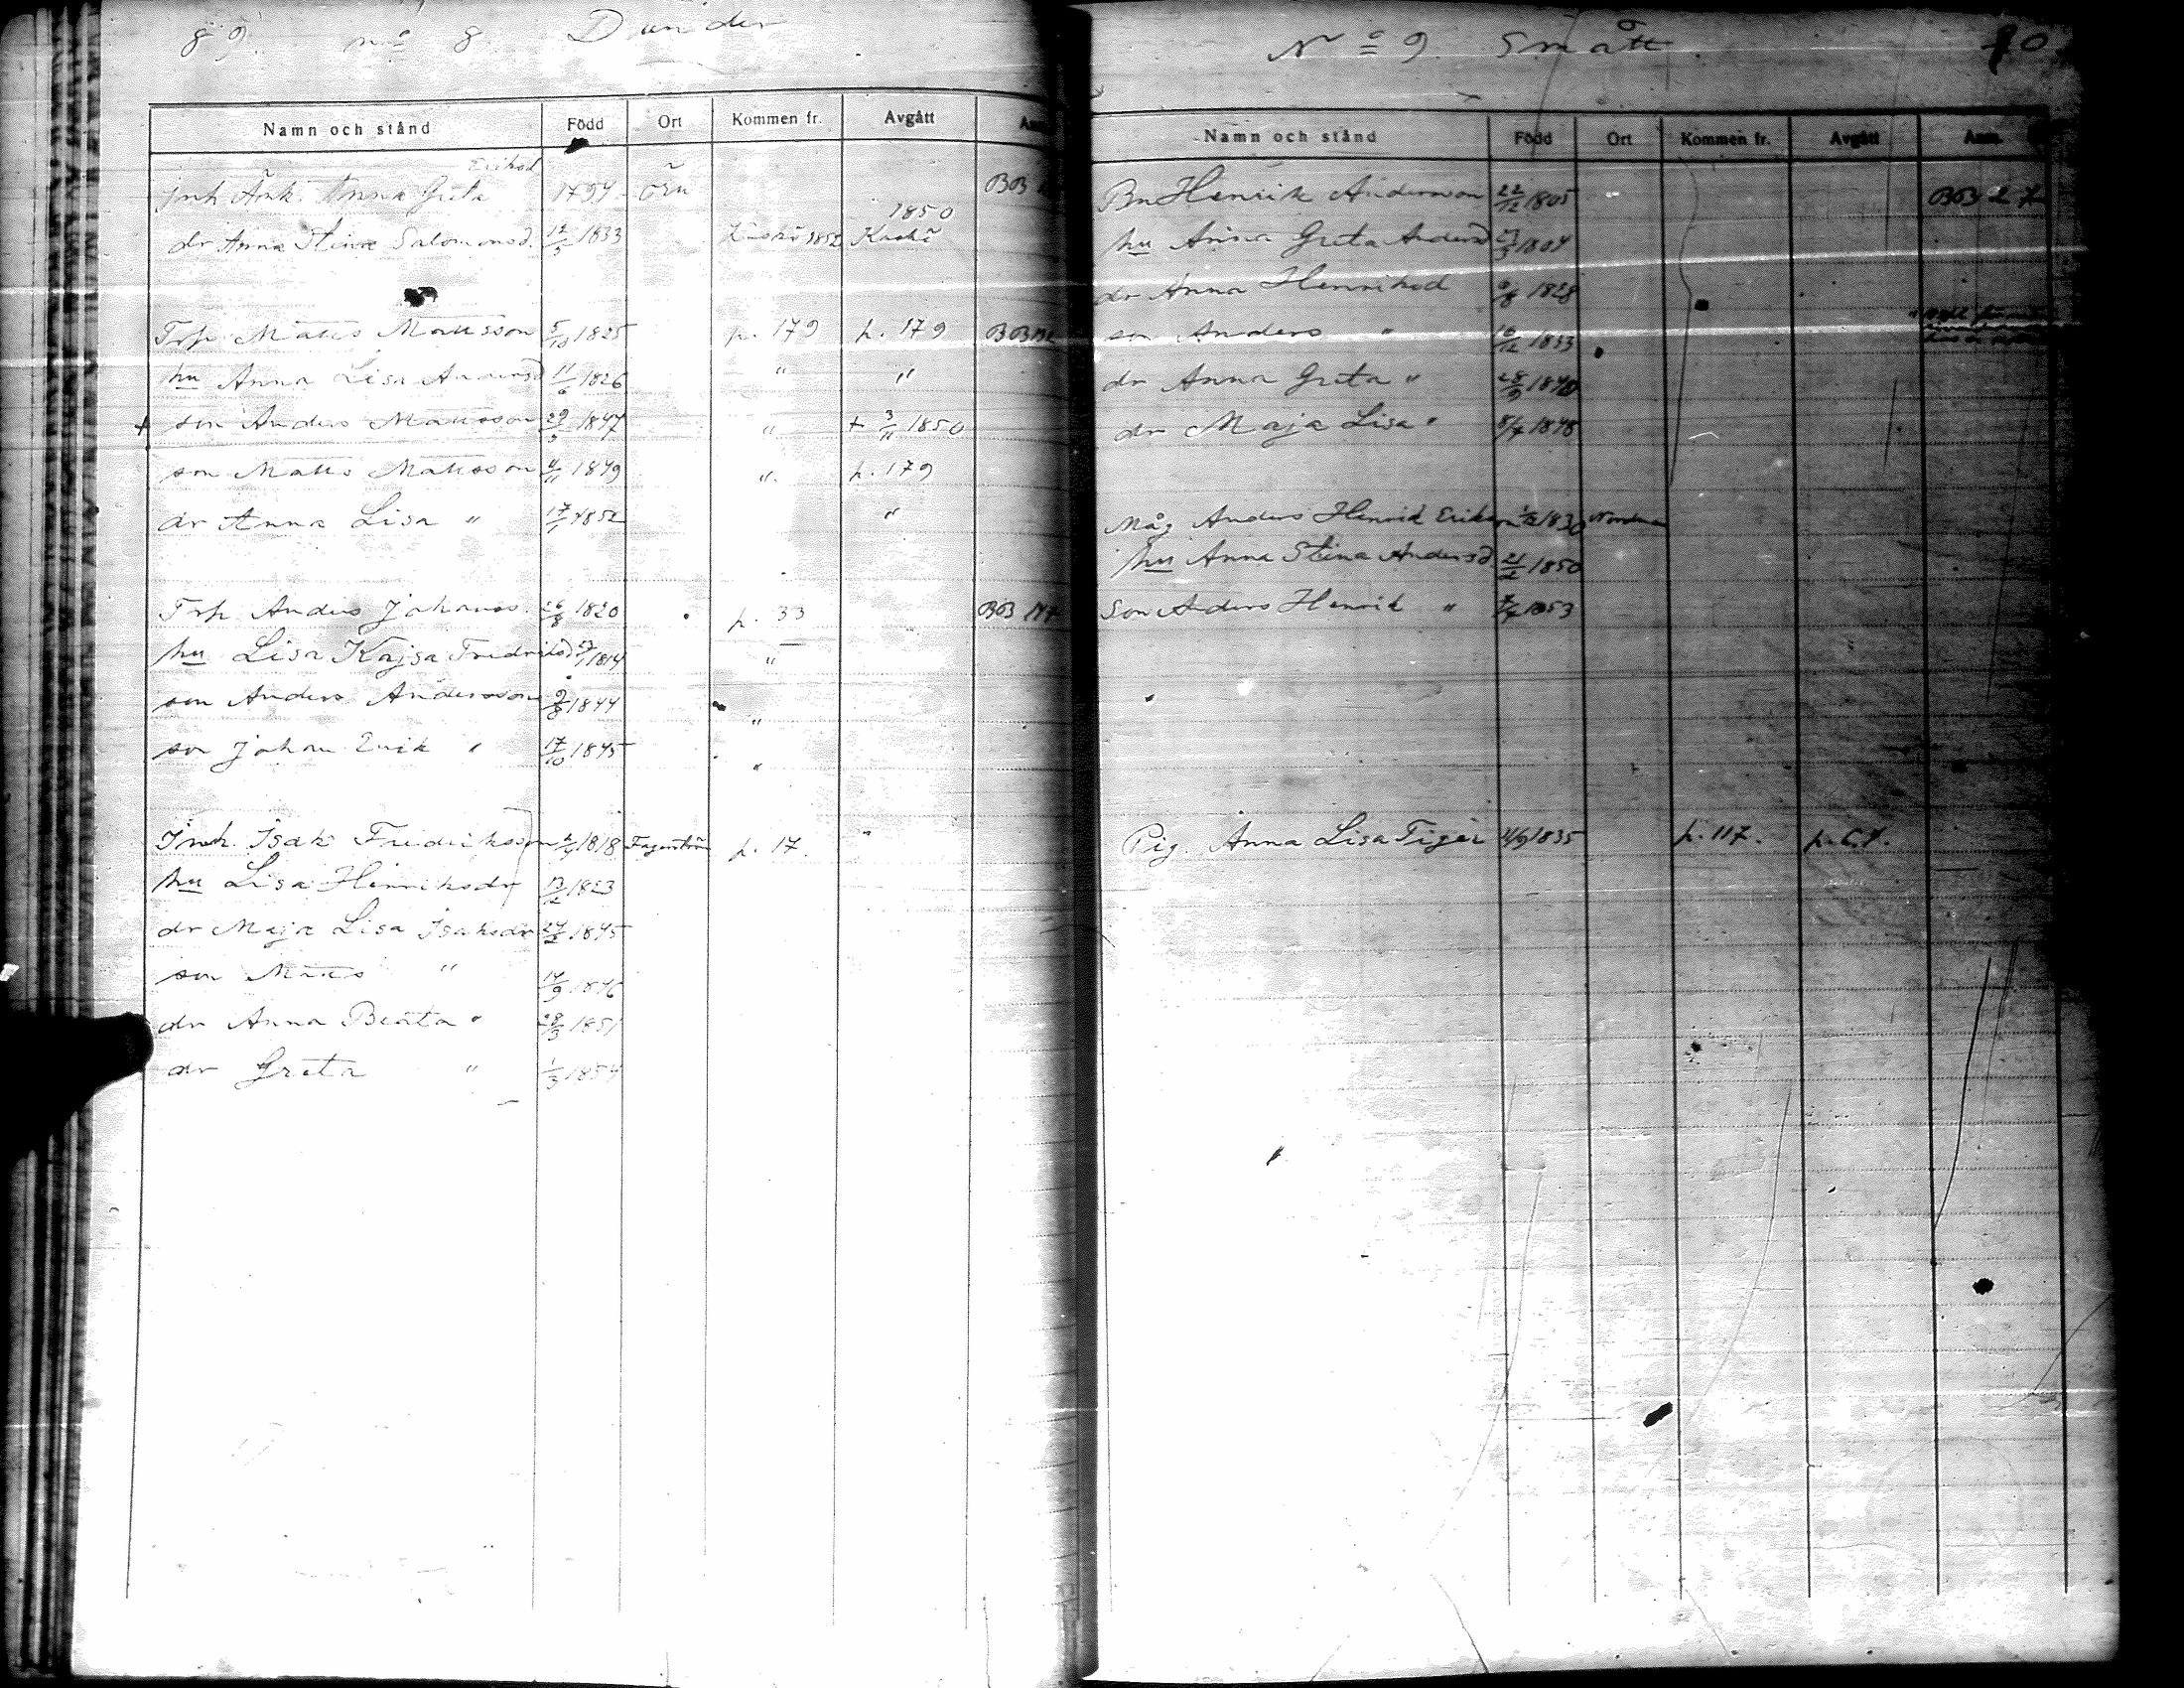 89. No 8. Dunder
Namn och stånd Född Ort Kommen fr. Avgått
Eriksd
Inh Änk. Anna Greta 1794 Öru BB
1850
dr Anna Stina Salomonsd. 12/5 1833 Kaskö 1852 Kaskö
Trp. Matts Mattsson 5/10 1825 p. 179 p. 179 BB
hu Anna Lisa Andersd 11/6 1826 " "
+ son Anders Mattsson 29/3 1847 " + 3/11 1850
son Matts Mattsson 4/11 1849 ". p. 179
dr Anna Lisa " 17/1 1852 "
Trp Anders Johanss. 26/8 1820 p. 33 BB
hu Lisa Kajsa Fredriksd 1814 "
son Anders Andersson 9/8 1844 "
son Johan Erik " 17/10 1845 "
Inh. Isak Fredriksson 1818 Fagerström p. 17.
hu Lisa Henriksdr 1823
dr Maja Lisa Isaksdr 24/2 1845
son Matts " 14/9 1846
dr Anna Beata " 28/3 1851
dr Greta " 1/3 1854
No 9. Smått 90.
Namn och stånd Född Ort Kommen fr. Avgått Anm.
Bn Henrik Andersson 22/12 1805 BB 27
hu Anna Greta Andersd 1804
dr Anna Henriksd 1828
son Anders " 16/12 1833
dr Anna Greta " 28/9 1840
dr Maja Lisa " 8/7 1848
Måg Anders Henrik Eriksson 1830
hu Anna Stina Andersd 21/2 1850
Son Anders Henrik " 1853
Pig. Anna Lisa Tiger 11/9 1835 p. 117.